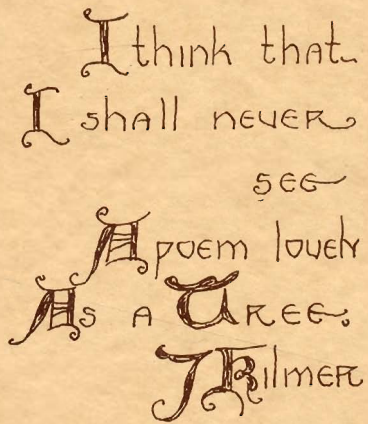 I think that
I shall never
see
A poem lovely
As a Tree.
J Kilmer